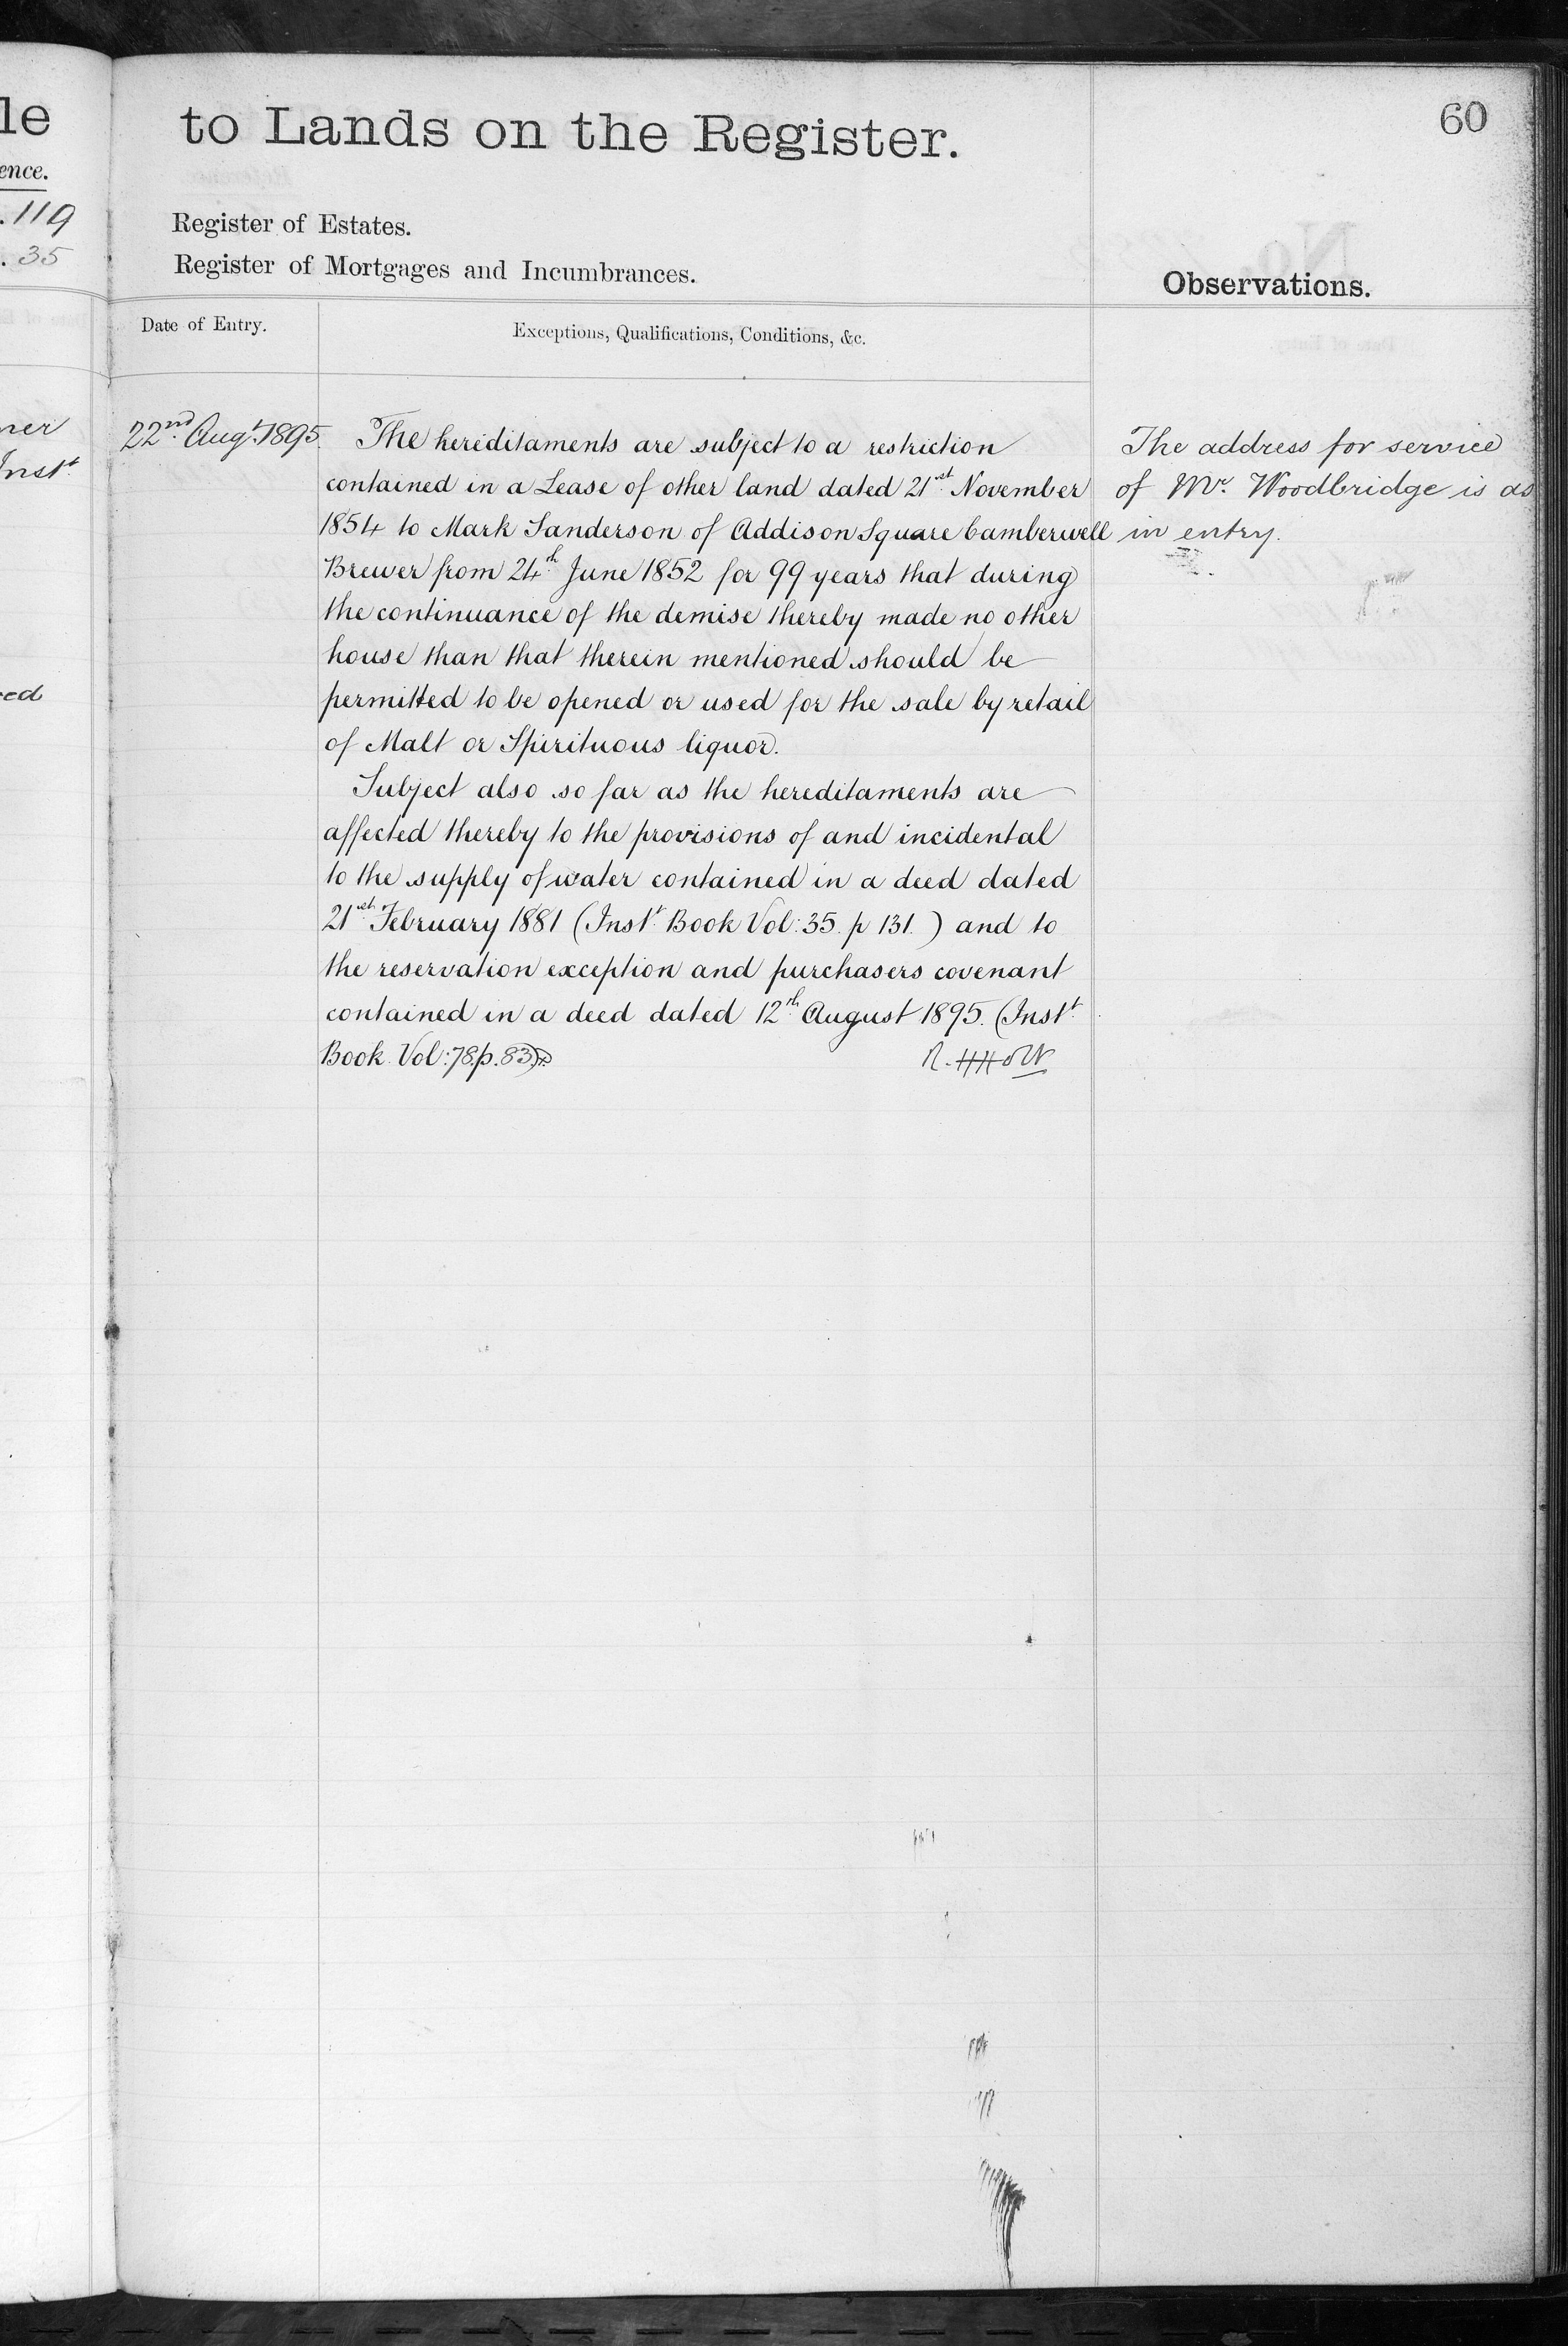 le
ence.
. 119
. 35
ner
Inst.
ced
to Lands on the Register.
60
Register of Estates.
Register of Mortgages and Incumbrances.
Observations.
Date of Entry.
Exceptions, Qualifications, Conditions, &c.
22nd Augt. 1895.
The hereditaments are subject to a restriction
contained in a Lease of other land dated 21st November
1854 to Mark Sanderson of Addison Square Camberwell
Brewer from 24th June 1852 for 99 years that during
the continuance of the demise thereby made no other
house than that therein mentioned should be
permitted to be opened or used for the sale by retail
of Malt or Spirituous liquor.
Subject also so far as the hereditaments are
affected thereby to the provisions of and incidental
to the supply of water contained in a deed dated
21st February 1881 (Inst. Book Vol: 35. p 131.) and to
the reservation exception and purchasers covenant
contained in a deed dated 12th August 1895. (Inst.
Book Vol: 78. p. 83)
The address for service
of Mr. Woodbridge is as
in entry.